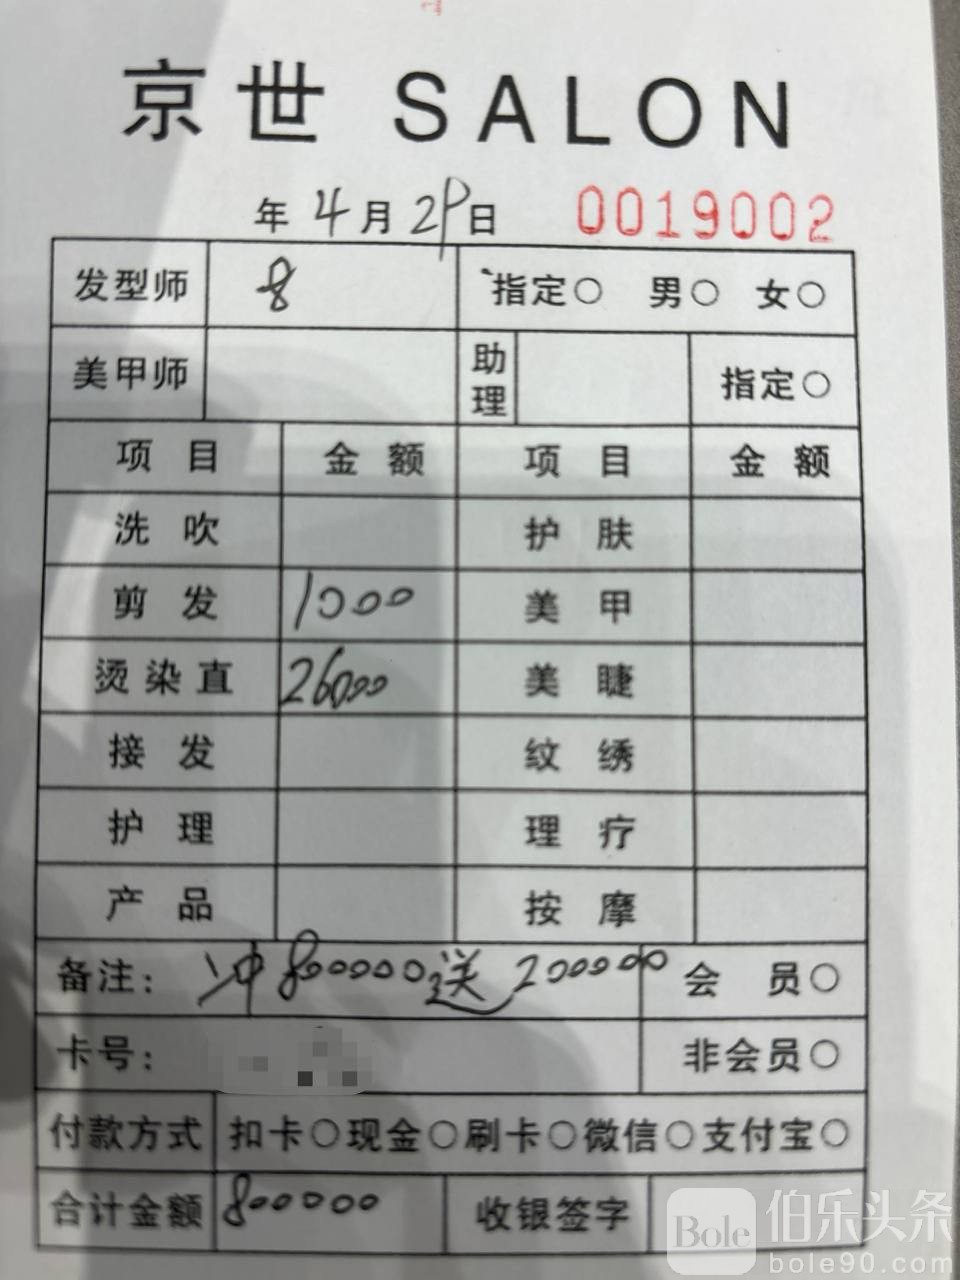 京世 SALON
年 4 月 29 日 0019002
发型师 8 指定○ 男○ 女○
美甲师 助理 指定○
项目 金额 项目 金额
洗吹 护肤
剪发 1000 美甲
烫染直 26000 美睫
接发 纹绣
护理 理疗
产品 按摩
备注: 冲800000送200000 会员○
卡号: 非会员○
付款方式 扣卡○现金○刷卡○微信○支付宝○
合计金额 800000 收银签字
Bole 伯乐头条
bole90.com